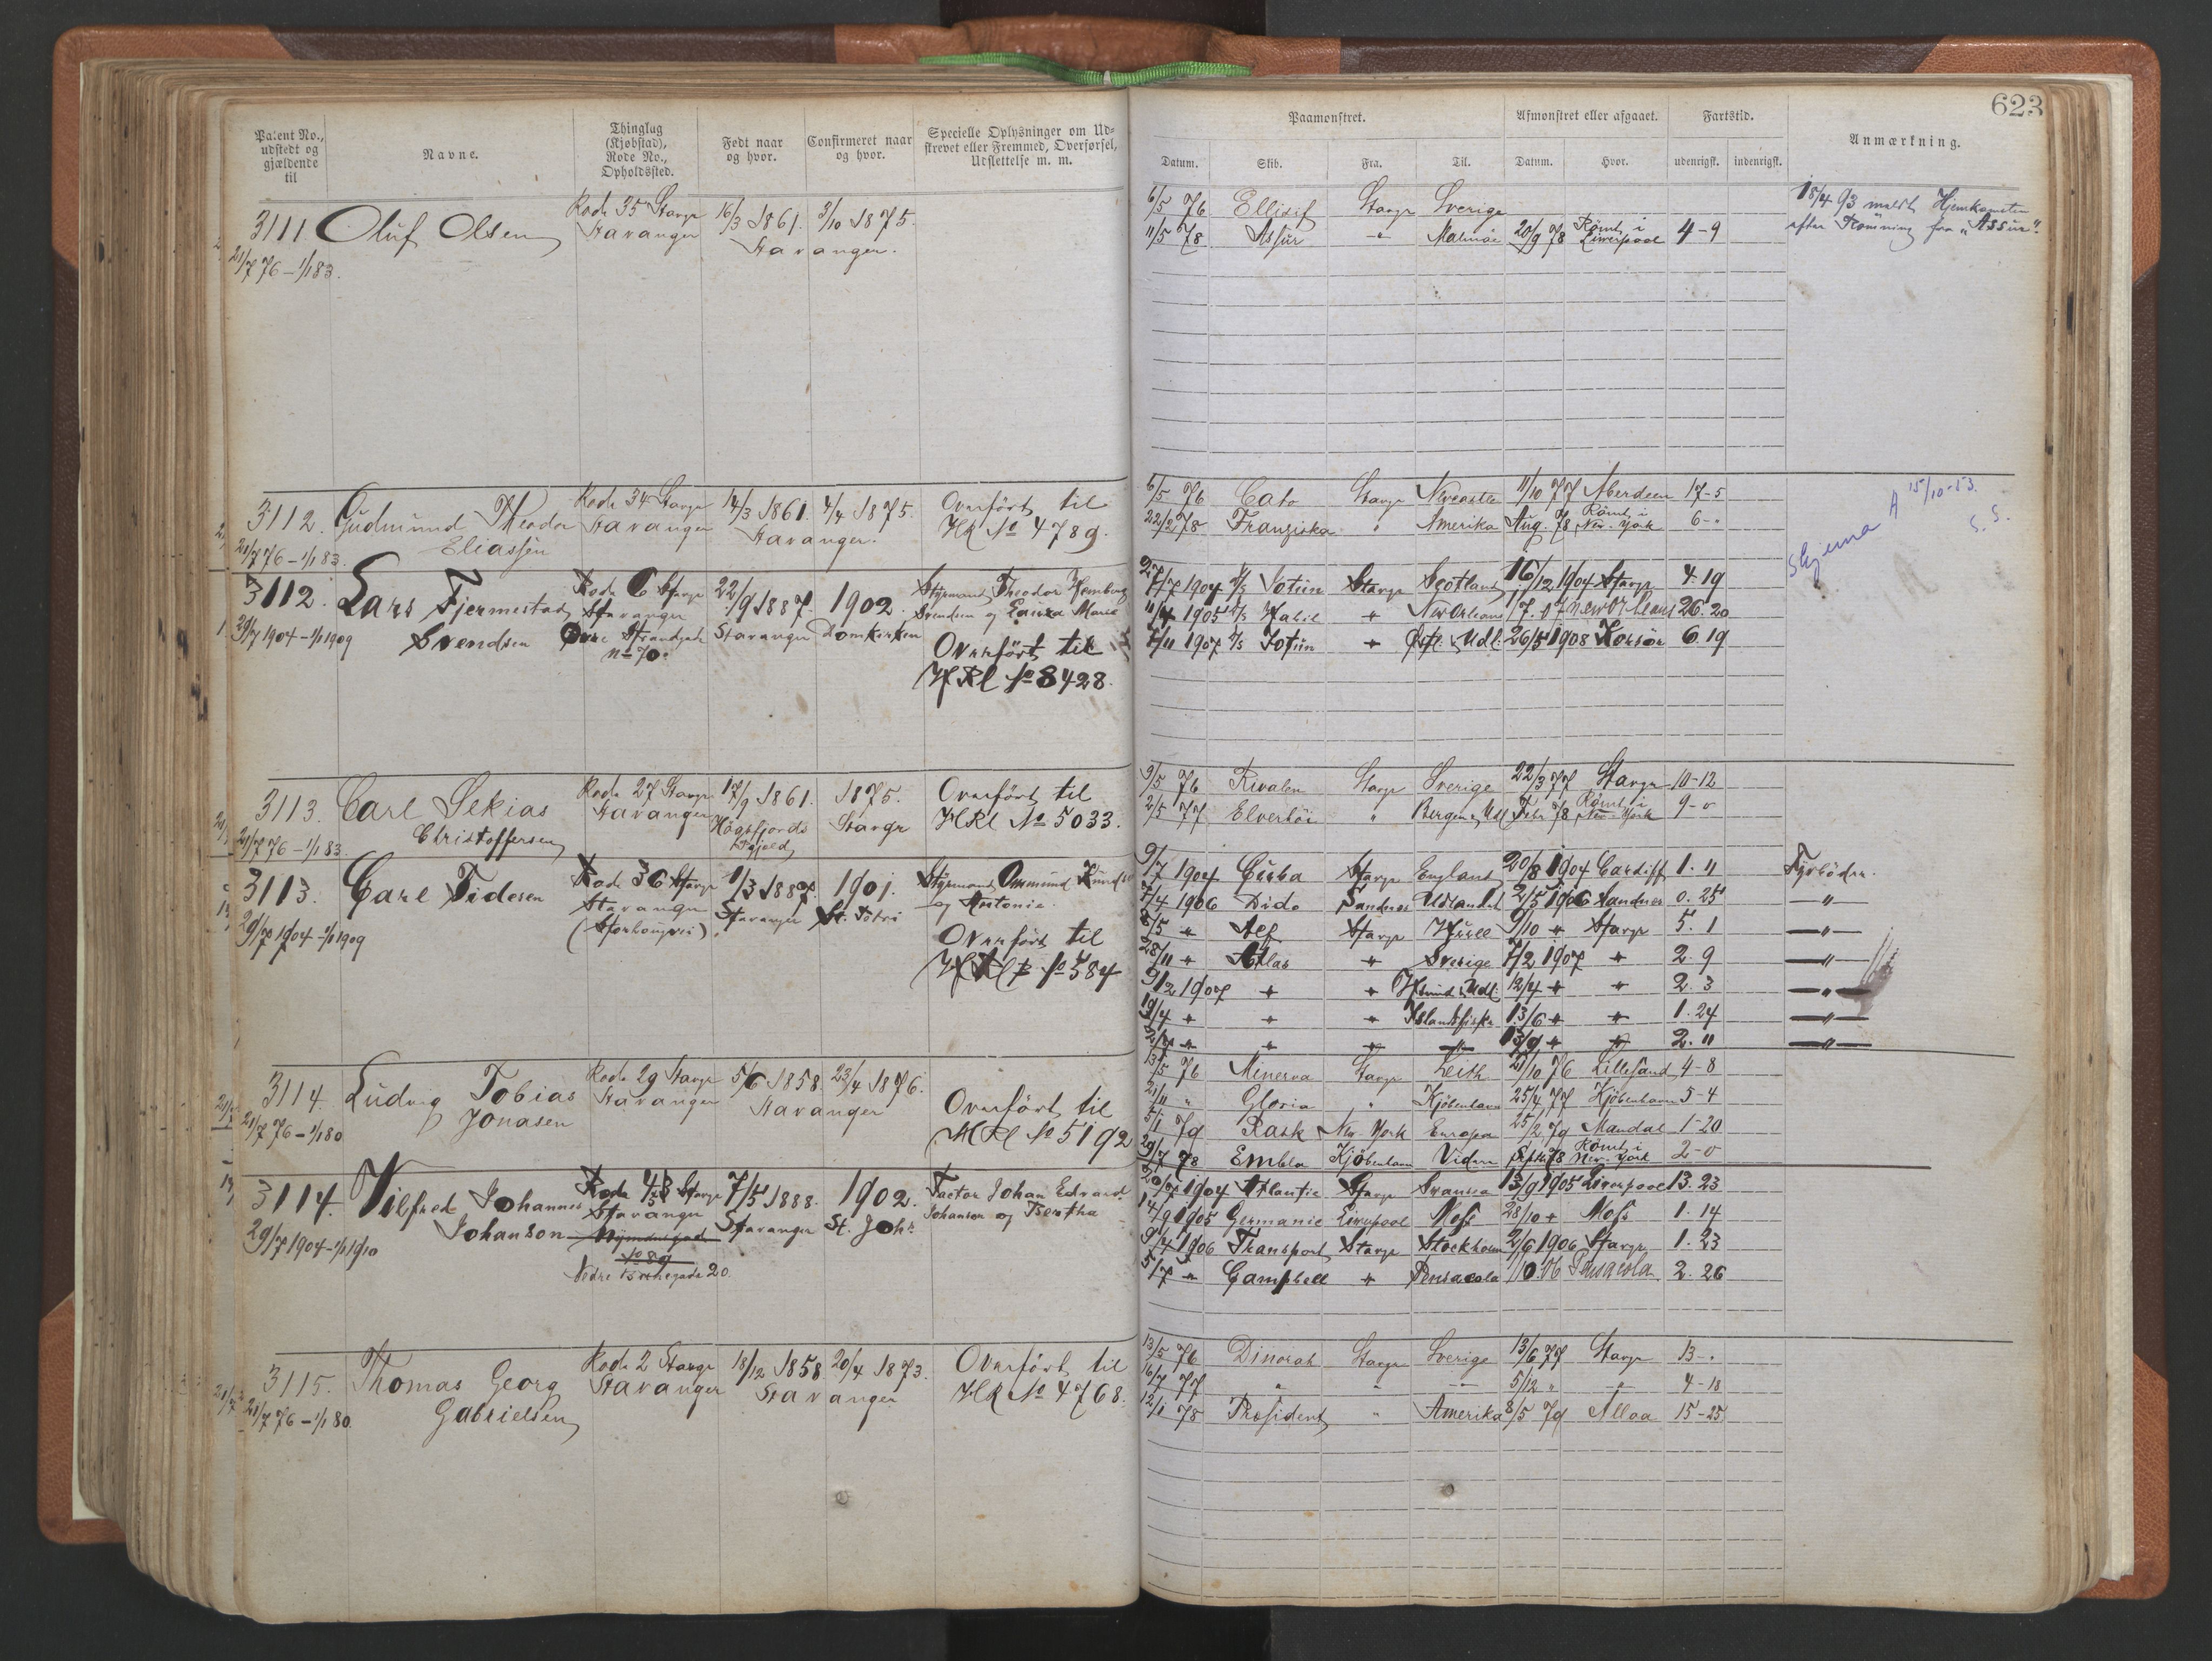 623
Patent No., udstedt og gjældende til
Navne.
Thinglag (Kjøbstad), Rode No., Opholdssted.
Født naar og hvor.
Confirmeret naar og hvor.
Specielle Oplysninger om Udskrevet eller Fremmed, Overførsel, Udslettelse m. m.
Paamønstret.
Afmønstret eller afgaaet.
Fartstid.
Anmærkning.
Datum. Skib. Fra. Til. Datum. Hvor. udenrigsk. indenrigsk.
3111 Oluf Olsen Rode 35 Stavgr 16/3 1861. 3/10 1875.
Stavanger Stavanger.
21/7 76 – 1/1 83.
6/5 76 Ellisif Stavgr Sverige
11/5 78 Assur " Malmöe 20/9 78 Römt i Liverpool 4-9
15/4 93 meldt Hjemkommen
efter Römning fra "Assur".
3112. Gudmund Theodor Rode 34 Stavgr 14/3 1861. 4/4 1875. Overført til
Eliassen Stavanger Stavanger. HR No 4789.
21/7 76 – 1/1 83.
6/5 76 Cato Stavgr Newcastle 11/10 77 Aberdeen 17-5
22/2 78 Franziska " Amerika Aug. 78 Römt i New-York 6-"
3112. Lars Tjermestad Rode 6 Stavgr 22/9 1887. 1902. Styrmand Theodor
Svendsen Stavanger Stavanger Domkirken Svendsen og Laura Marie
29/7 1904 – 1/1 1909 Øvre Strandgade
No 70. Overført til
HRl No 8428.
27/7 1904 Jotun Stavgr Scotland 16/12 1904 Stavgr 4. 19
11/4 1905 Habil " New Orleans 1/7. 07 New Orleans 26. 20
7/11 1907 Jotun " Udl. 26/5 1908 Korsör 6. 19
15/10-53.
S. S.
3113. Carl Sekias Rode 27 Stavgr 17/9 1861. 1875. Overført til
Christoffersen Stavanger Högsfjords Stavgr HRl No 5033.
21/7 76 – 1/1 83.
9/5 76 Rivalen Stavgr Sverige 22/3 77 Stavgr 10-12
2/5 77 Elverhöi " Bergen & Udl Febr 78 Römt i New-York 9-0
3113. Carl Tidesen Rode 36 Stavgr 11/3 1887. 1901. Styrmand Ommund
Stavanger Stavanger St. Petri og Antonie.
29/7 1904 – 1/1 1909
(Storhougvei) Overført til
HRl No 584
9/7 1904 Cuba Stavgr England 20/8 1904 Cardiff 1. 11 Fyrböder.
7/4 1906 Dido Sandnes Udlandet 2/5 1906 Sandnes 0. 25 "
8/5 " Alf Stavgr Hull 9/10 " Stavgr 5. 1 "
28/11 " Atlas " Sverige 7/2 1907 " 2. 9 "
9/2 1907 " " 12/4 " " 2. 3 "
19/4 " " " Islandsfiske 13/6 " " 1. 24 "
" " " " 13/9 " " 2. " "
3114. Ludvig Tobias Rode 29 Stavgr 5/6 1858. 23/4 1876.
Jonasen Stavanger Stavanger Overført til
21/7 76 – 1/1 80 HRl No 5192
13/5 76 Minerva Stavgr Leith 21/10 76 Lillesand 4-8
21/11 " Gloria " Kjöbenhavn 25/4 77 Kjöbenhavn 5-4
5/1 79 Rask New-York Europa 25/2 79 Mandal 1-20
29/7 78 Embla Kjöbenhavn Viden Septb 78 Römt i New-York 2-0
3114. Vilfred Johannes Rode 43 Stavgr 7/5 1888. 1902. Factor Johan Edvard
Johanson Stavanger Stavanger St. Johs Johanson og Bertha
29/7 1904 – 1/1 1910
No 89
Nedre Banegade 20.
20/7 1904 Atlantic Stavgr Svansea 13/9 1905 Liverpool 13. 23
14/9 1905 Germanic Liverpool Moss 28/10 " Moss 1. 14
9/4 1906 Transport Stavgr Stockholm 2/6 1906 Stavgr 1. 23
5/7 " Campbell " Pensacola 1/10. 06 Pensacola 2. 26
3115. Thomas Georg Rode 2 Stavgr 18/12 1858 20/4 1873. Overført til
Gabrielsen Stavanger Stavanger HR No 4768.
21/7 76 – 1/1 80.
13/5 76 Dinorah Stavgr Sverige 13/6 77 Stavgr 13-"
16/7 77 " " " 5/12 " " 4-18
12/1 78 Præsident " Amerika 8/5 79 Alloa 15-25